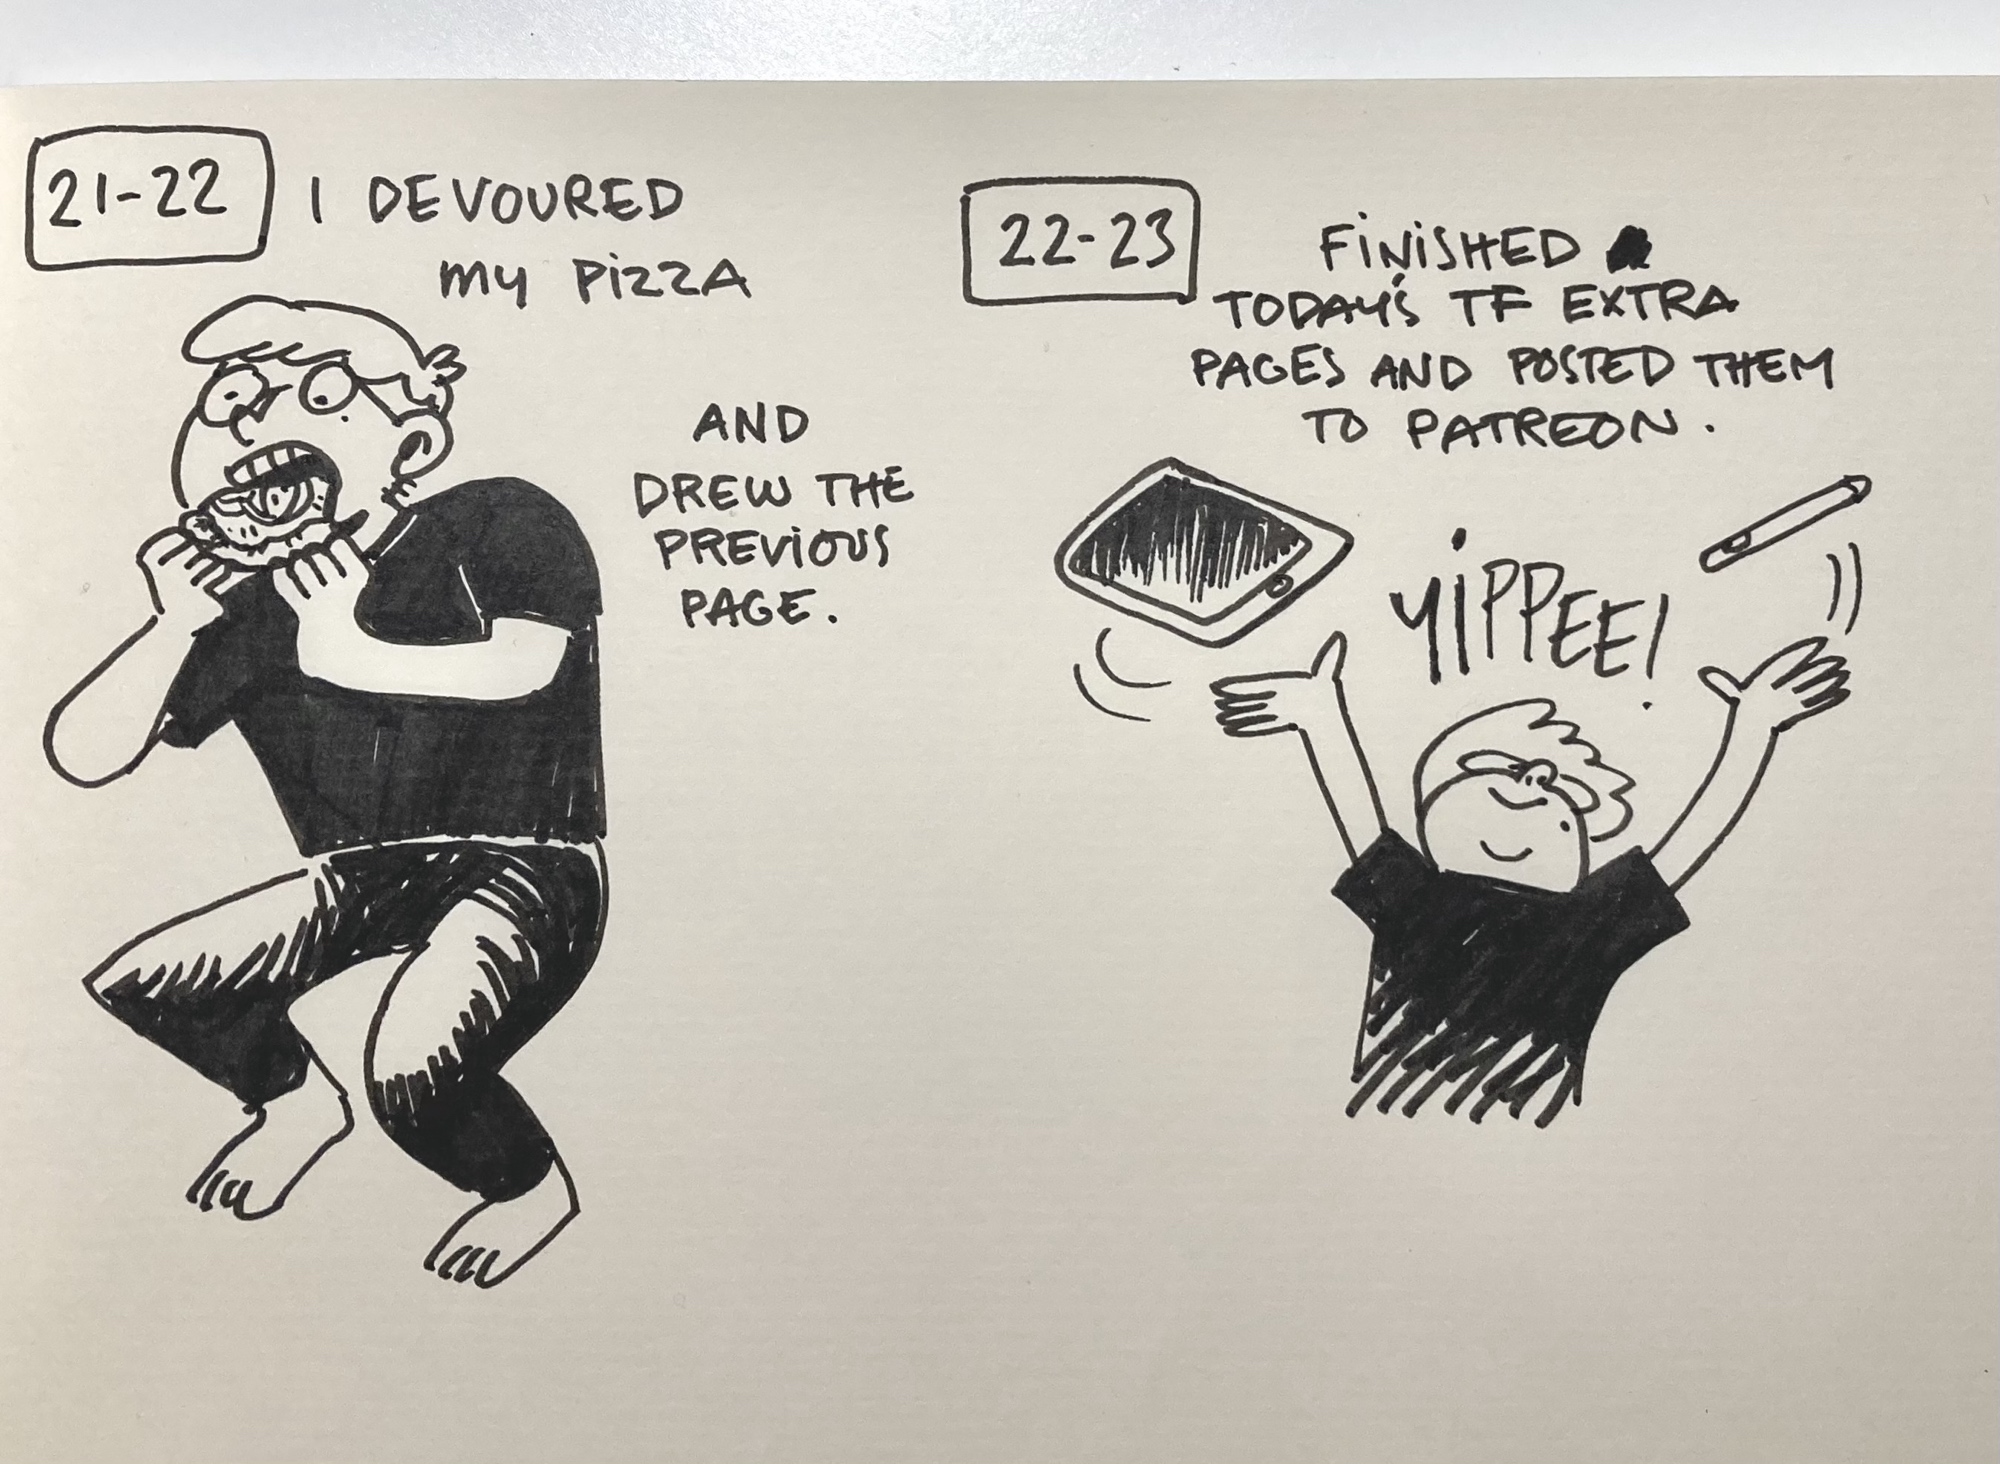 21-22
I DEVOURED
MY PIZZA
AND
DREW THE
PREVIOUS
PAGE.
22-23
FINISHED
TODAY'S TF EXTRA
PAGES AND POSTED THEM
TO PATREON.
YIPPEE!